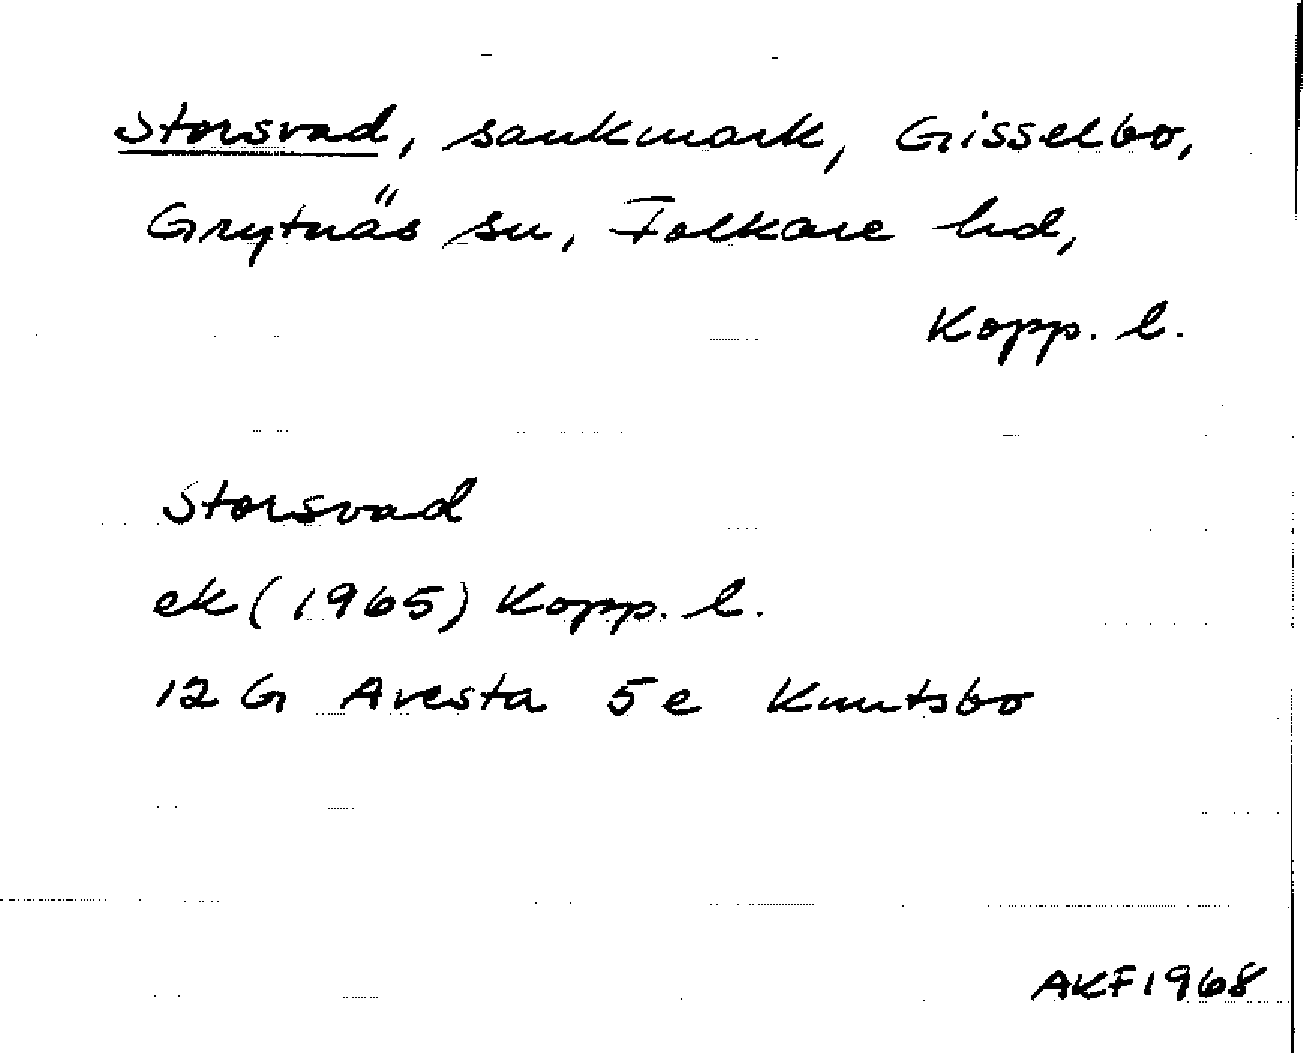 Storsvad, sankmark, Gisselbo,
Grytnäs sn, Folkare hd,
Kopp. l.
Storsvad
ek (1965) Kopp. l.
12 G Avesta 5 e Knutsbo
AKF 1968